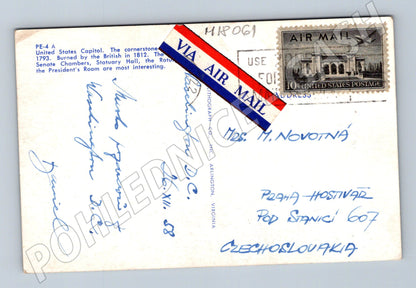 H18061
PE-4 A
United States Capitol. The cornerstone
1793. Burned by the British in 1812. The
Senate Chambers, Statuary Hall, the Rotu
the President's Room are most interesting.
VIA AIR MAIL
USE
ADDRESS
AIR MAIL
10¢ UNITED STATES POSTAGE
Washington D.C.
26.XII.58
Washington D.C.
Daniel
ARLINGTON, VIRGINIA
MRS. M. NOVOTNÁ
PRAHA-HOSTIVAŘ
POD STANICÍ 607
CZECHOSLOVAKIA